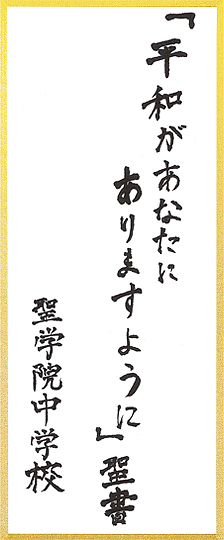 「平和があなたに
ありますように」聖書
聖学院中学校